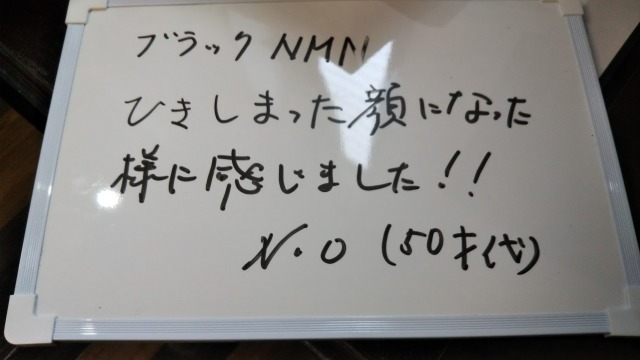 ブラック NMN
ひきしまった顔になった
様に感じました!!
N.O (50才代)